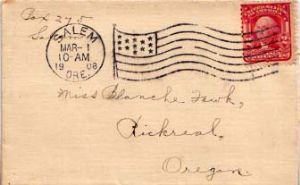 Box 275
SALEM
MAR-1
10-AM
1908
ORE.
Miss Blanche Hawk,
Rickreal,
Oregon.